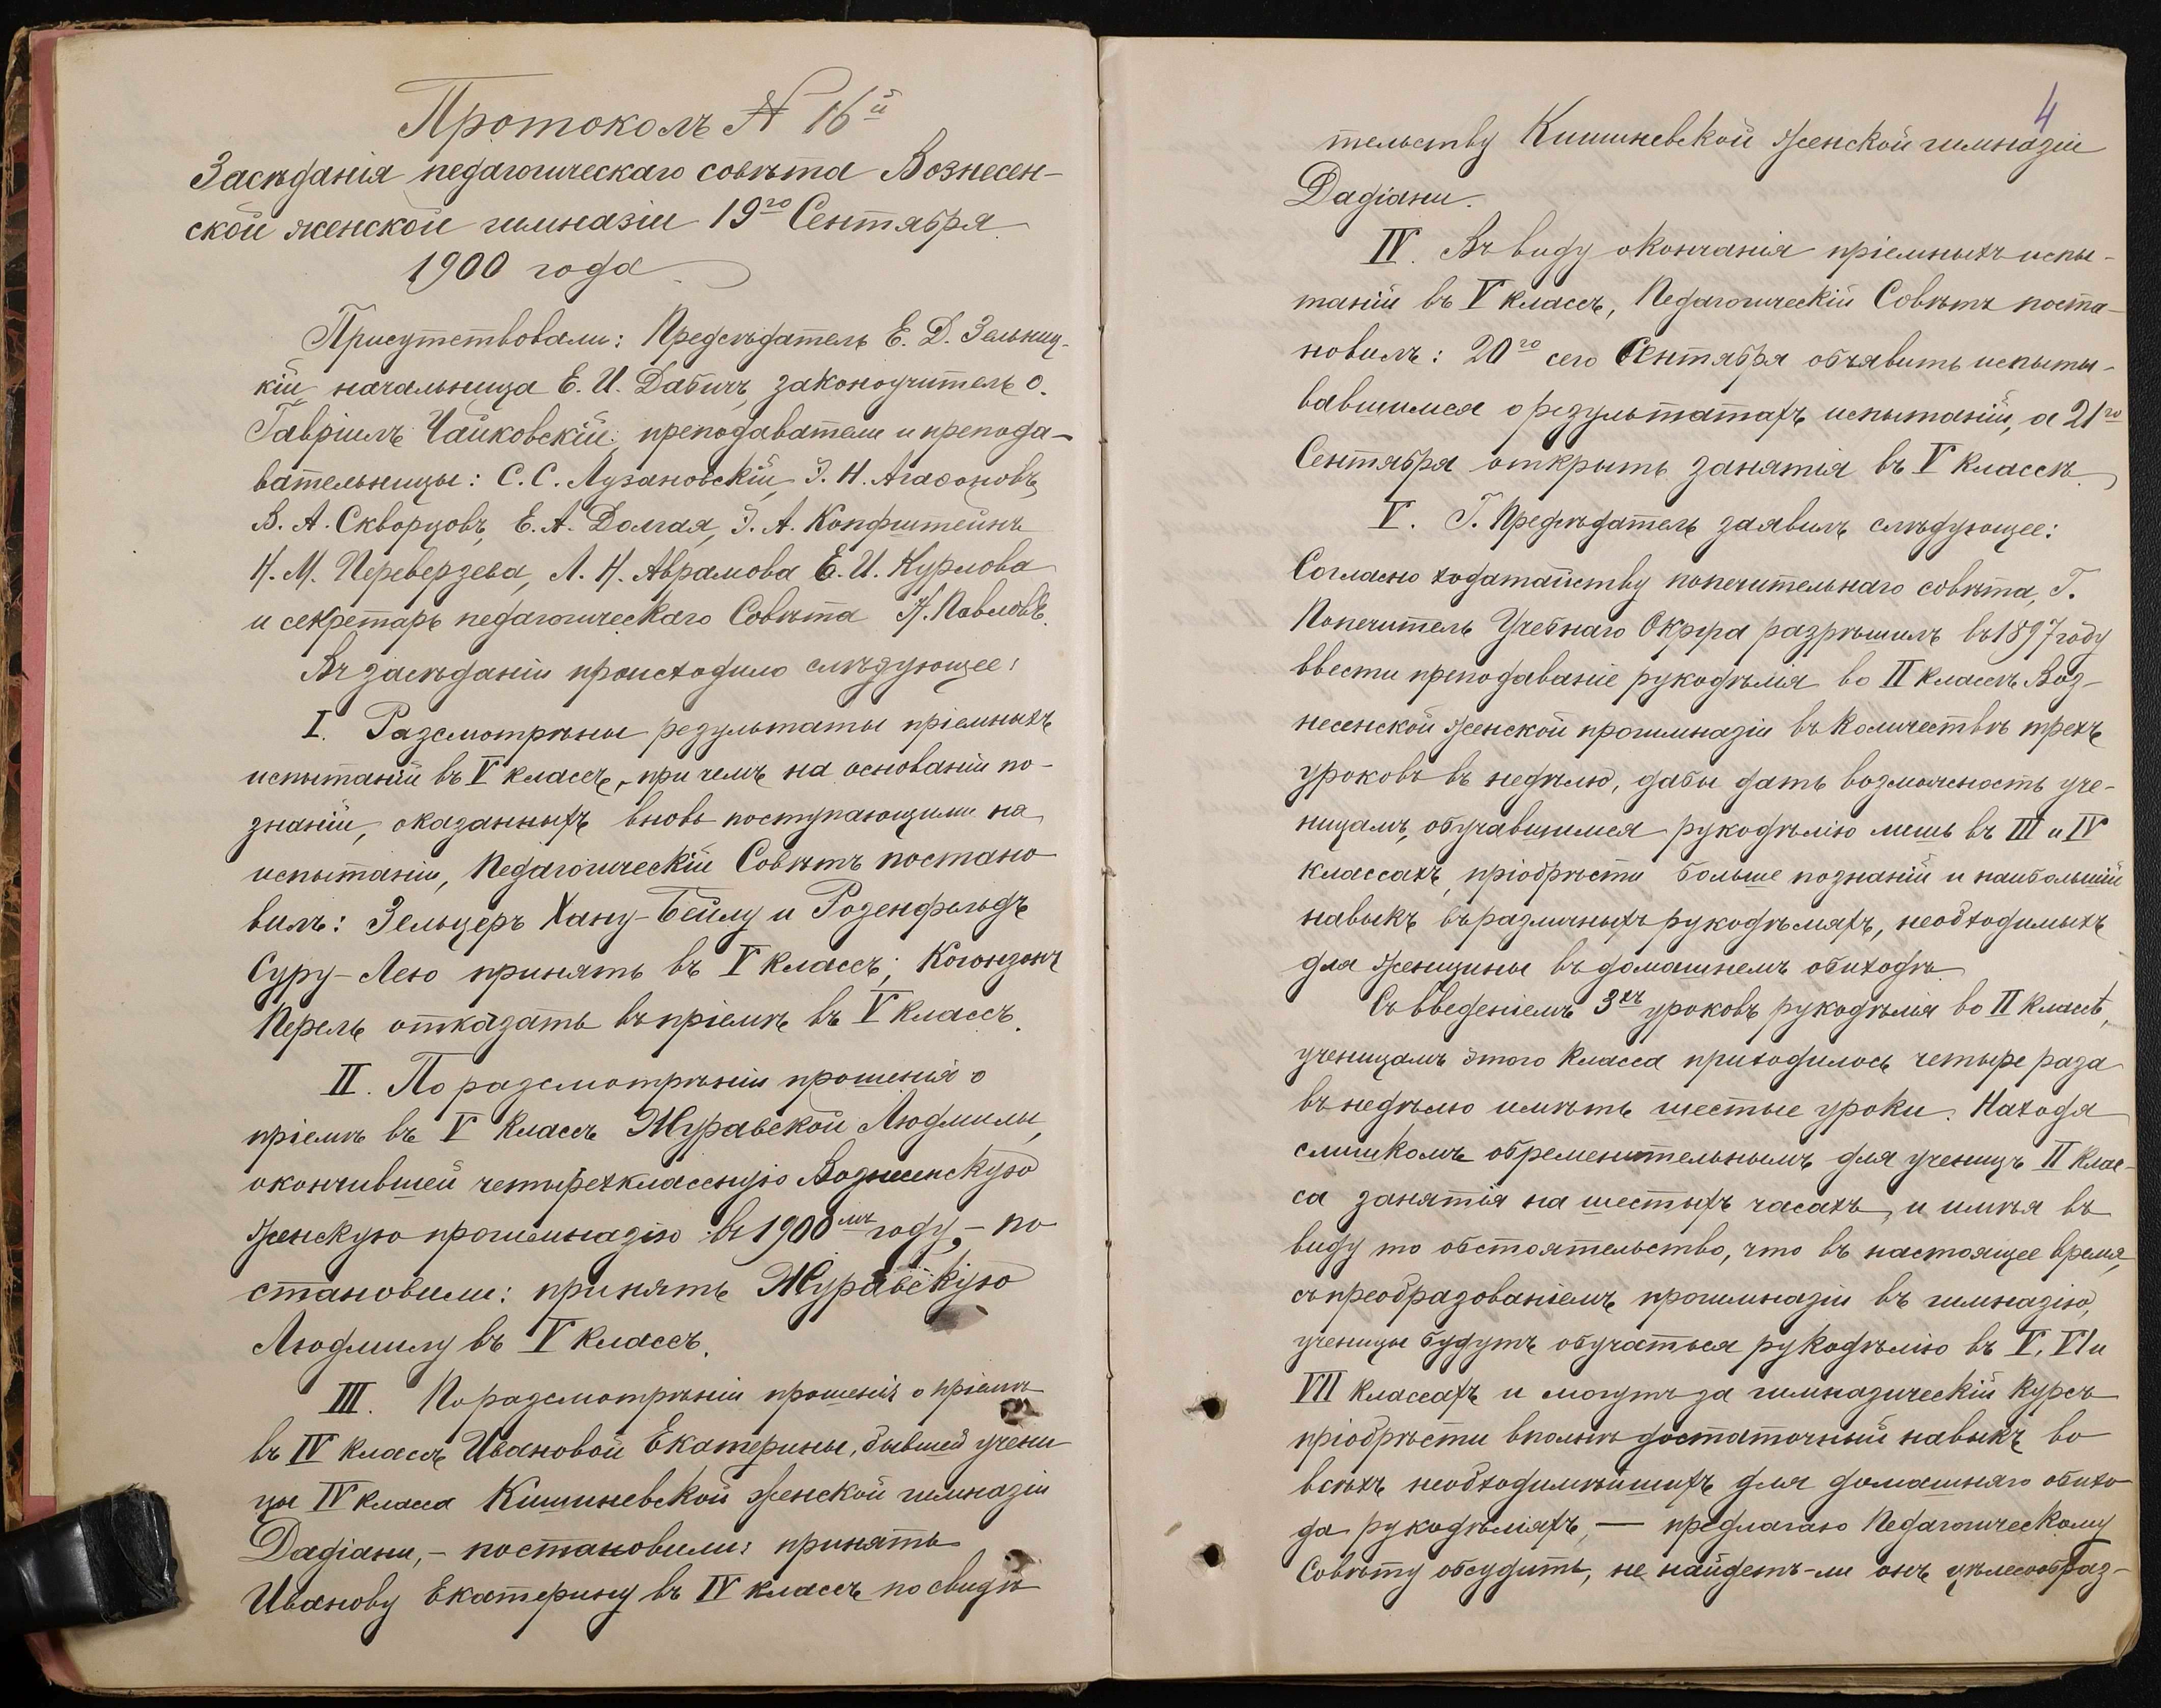 Протоколъ № 16й
Засѣданія педагогическаго совѣта Вознесен-
ской женской гимназіи 19го Сентября
1900 года
Присутствовали: Предсѣдатель Е. Д. Зельниц-
кій, начальница Е. И. Дабичъ, законоучитель о.
Гавріилъ Чайковскій; преподаватели и препода-
вательницы: С. С. Лузановскій, Э. Н. Агаѳоновъ,
В. А. Скворцовъ, Е. А. Долгая, Э. А. Копфштейнъ
Н. М. Переверзева, Л. Н. Аврамова Е. И. Курлова
и секретарь педагогическаго Совѣта Н. Павловъ.
Въ засѣданіи происходило слѣдующее:
I. Разсмотрѣны результаты пріемныхъ
испытаній въ V классъ, при чемъ на основаніи по-
знаній, оказанныхъ вновь поступающими на
испытаніи, Педагогическій Совѣтъ постано
вилъ: Зельцеръ Хану-Бейлу и Розенфельдъ
Суру-Лею принять въ V классъ; Когонзонъ
Перель отказать въ пріемѣ въ V классъ.
II. По разсмотрѣніи прошенія о
пріемѣ въ V классъ Журавской Людмилы,
окончившей четырехклассную Вознесенскую
женскую прогимназію въ 1900мъ году, – по
становили: принять Журавскую
Людмилу въ V классъ.
III. По разсмотрѣніи прошенія о пріемѣ
въ IV классъ Ивановой Екатерины, бывшей учени
цы IV класса Кишиневской женской гимназіи
Дадіани, – постановили: принять
Иванову Екатерину въ IV классъ по свидѣ
4
тельству Кишиневской женской гимназіи
Дадіани.
IV. Въ виду окончанія пріемныхъ испы-
таній въ V классъ, Педагогическій Совѣтъ поста-
новилъ: 20го сего Сентября объявить испыты-
вавшимся о результатахъ испытаній, а 21го
Сентября открыть занятія въ V классѣ.
V. Г. Предсѣдатель заявилъ слѣдующее:
Согласно ходатайству попечительнаго совѣта, Г.
Попечитель Учебнаго Округа разрѣшилъ въ 1897 году
ввести преподаваніе рукодѣлія во II классѣ Воз-
несенской женской прогимназіи въ количествѣ трехъ
уроковъ въ недѣлю, дабы дать возможность уче-
ницамъ, обучавшимся рукодѣлію лишь въ III и IV
классахъ, пріобрѣсти больше познаній и наибольшій
навыкъ въ различныхъ рукодѣляхъ, необходимыхъ
для женщины въ домашнемъ обиходѣ.
Съ введеніемъ 3хъ уроковъ рукодѣлія во II классѣ,
ученицамъ этого класса приходилось четыре раза
въ недѣлю имѣть шестые уроки. Находя
слишкомъ обременительнымъ для ученицъ II клас-
са занятія на шестыхъ часахъ, и имѣя въ
виду то обстоятельство, что въ настоящее время,
съ преобразованіемъ прогимназіи въ гимназію,
ученицы будутъ обучаться рукодѣлію въ V, VI и
VII классахъ и могутъ за гимназическій курсъ
пріобрѣсти вполнѣ достаточный навыкъ во
всѣхъ необходимѣйшихъ для домашняго обихо
да рукодѣліяхъ, — предлагаю Педагогическому
Совѣту обсудить, не найдетъ-ли онъ цѣлесообраз-